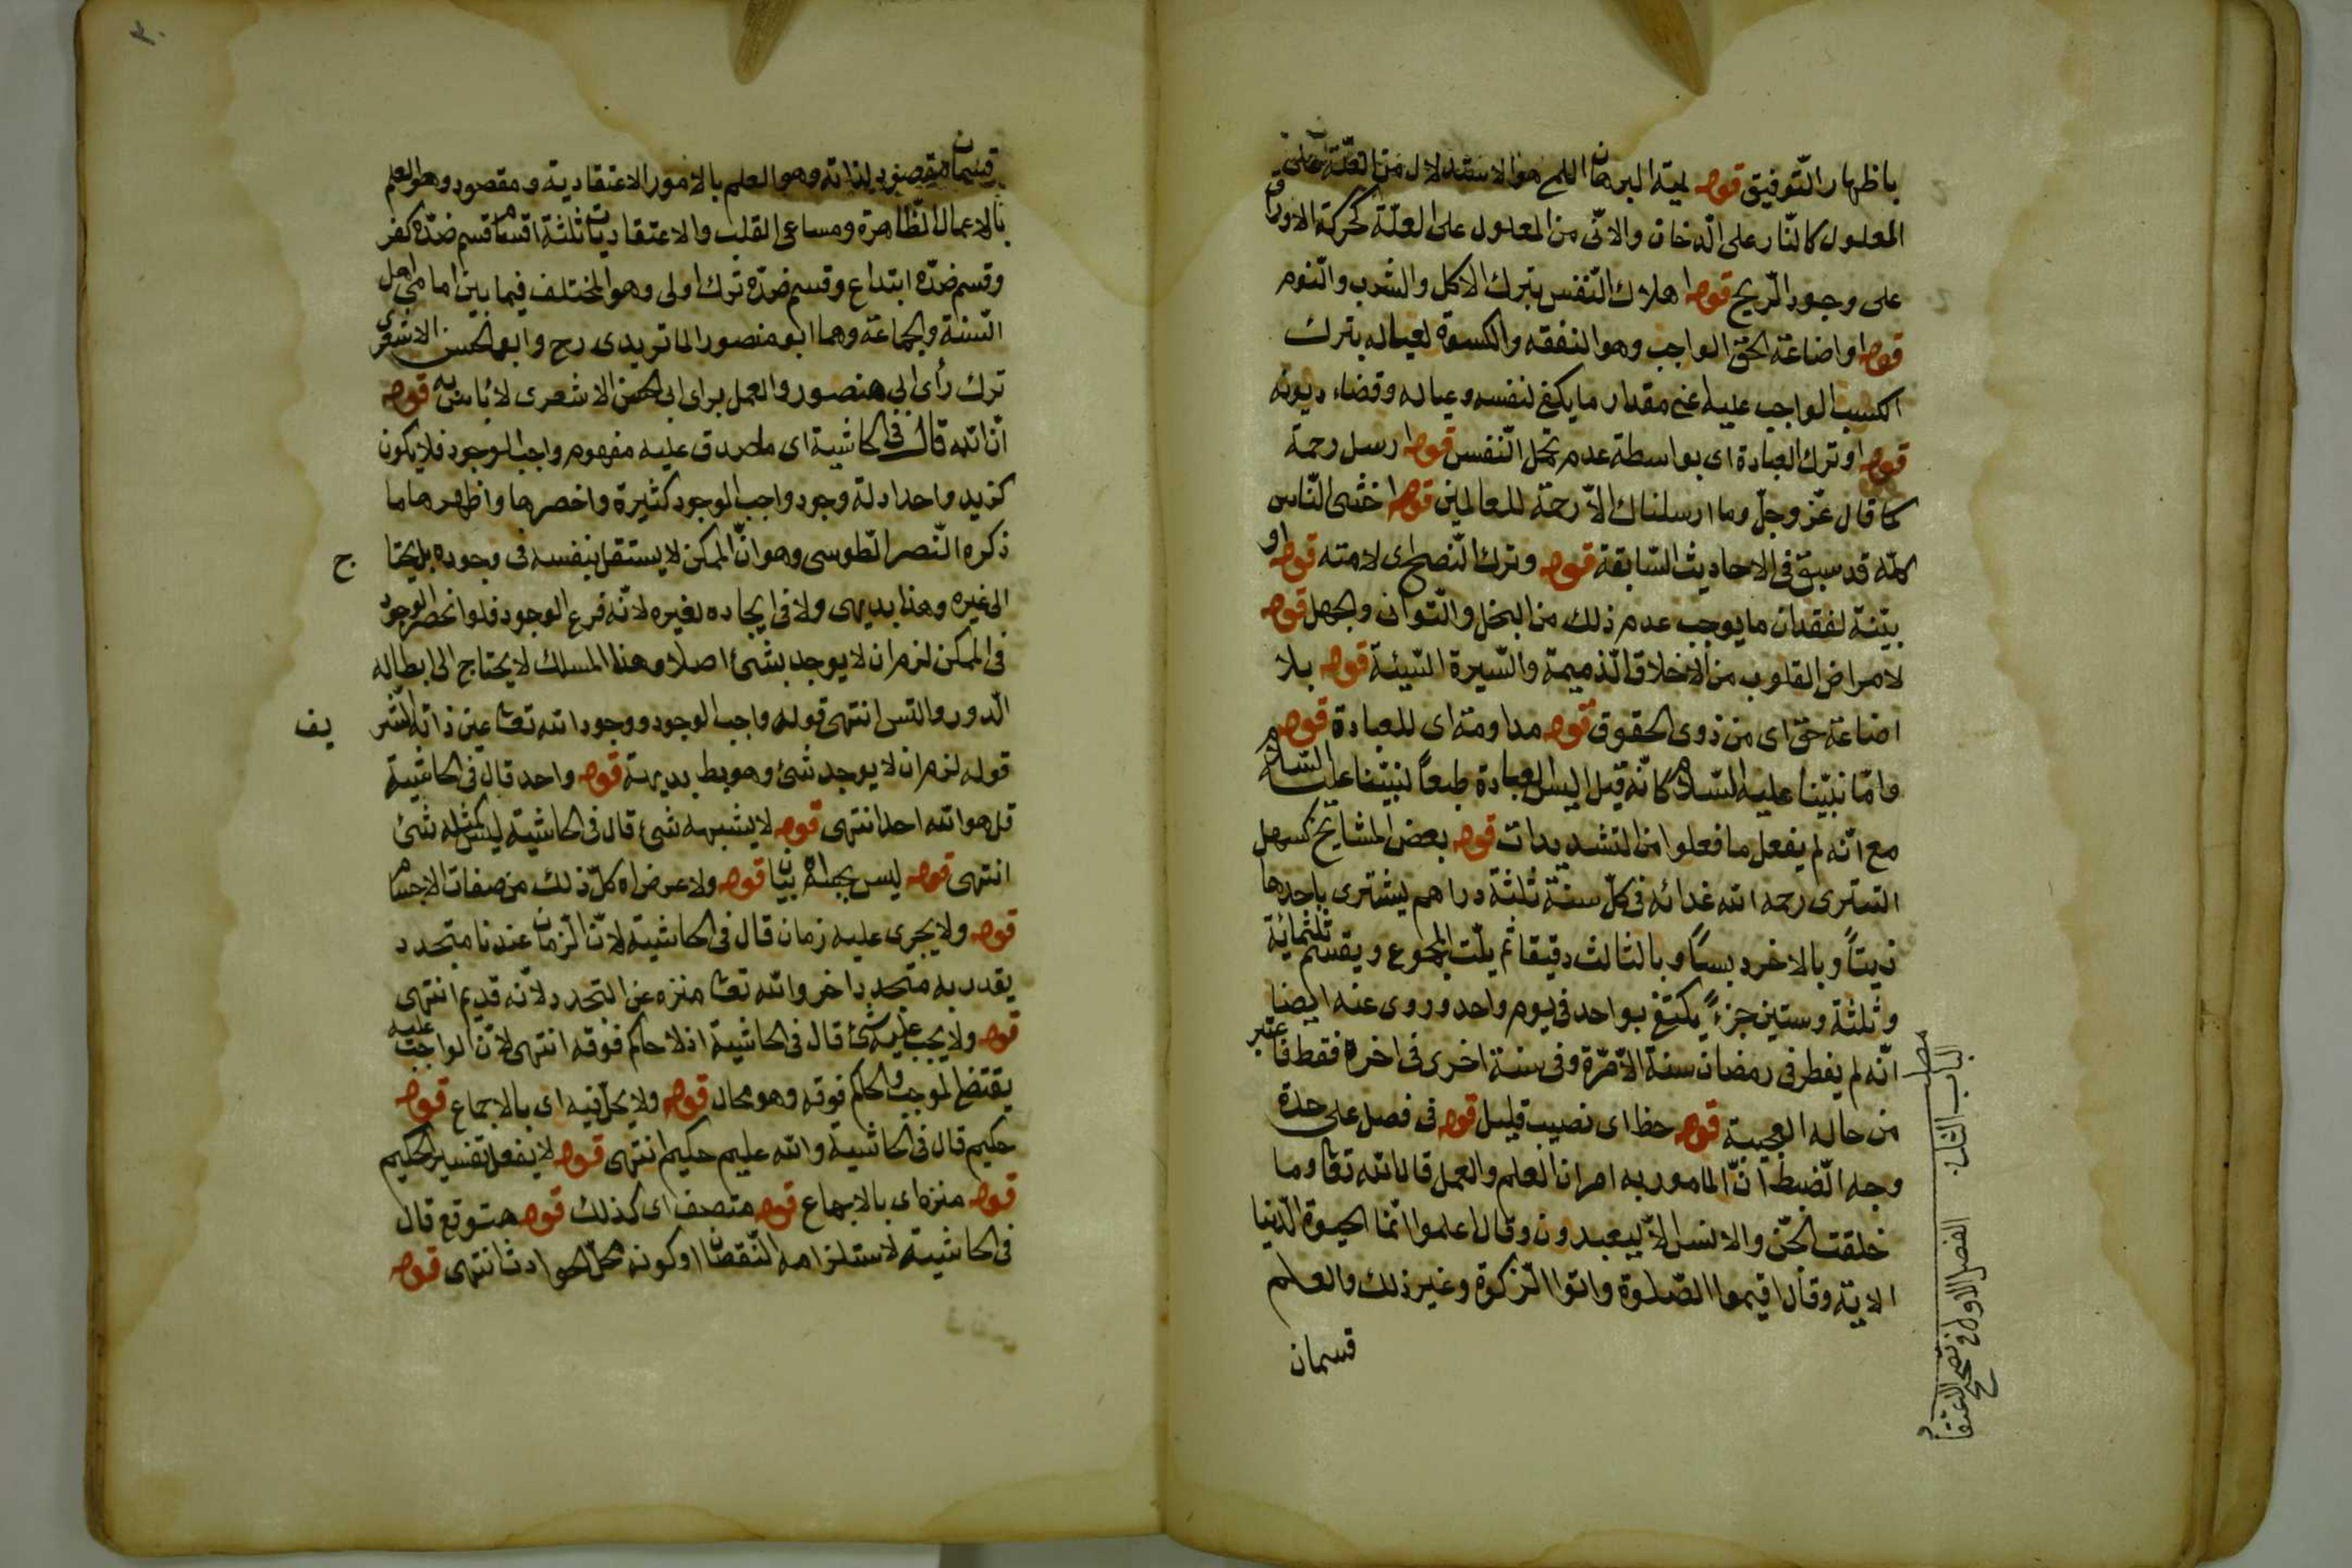 باظهار التّوفيق قوله لميّة البرهان اللم هو الاستدلال من العلّة على
المعلول كالنّار على الدّخان والانّى من المعلول على العلّة كحركة الاوراق
على وجود الرّيح قوله اهلاك النّفس بترك الاكل والشّرب والنّوم
قوله او اضاعة الحقّ الواجب وهو النفقه والكسوة لعياله بترك
الكسب الواجب عليه عنى مقدار ما يكفى لنفسه وعياله وقضاء ديونه
قوله او ترك العبادة اى بواسطة عدم تحمّل النّفس قوله ارسل رحمة
كما قال عزّ وجلّ وما ارسلناك الاّ رحمة للعالمين قوله اخشى النّاس
كلّه قد سبق فى الاحاديث السّابقة قوله وترك النّصح اى لامته قوله او
بيّنة لفقدان ما يوجب عدم ذلك من البخل والتّوانى والجهل قوله
لامراض القلوب من الاخلاق الذّميمة والسّيرة السّيئة قوله بلا
اضاعة حق اى من ذوى الحقوق قوله مداومته اى للعبادة قوله
وامّا نبيّنا عليه السّلام كانّه قيل اليس العبادة طبعاً لنبيّنا عليه السّلام
مع انّه لم يفعل ما فعلوا من التشديدات قوله بعض المشايخ كسهل
التسترى رحمه الله غدائه فى كلّ سنة ثلثة دراهم يشترى باحدها
زيتاً وبالاخر دبساً وبالثالث دقيقا ثم يلتّ المجموع ويقسم ثلثمائة
وثلثة وستين جزءً يكتفى بواحد فى يوم واحد وروى عنه ايضا
انّه لم يفطر فى رمضان سنة الاّ مرّة وفى سنة اخرى فى اخره فقط فاعتبر
من حاله العجيبة قوله حظ اى نصيب قليل قوله فى فصل على حدة
وجه الضّبط انّ المامور به امران العلم والعمل قال الله تعا وما
خلقت الجنّ والانس الاّ ليعبدون وقال اعلموا انّما الحيوة الدّنيا
الاية وقال اقيموا الصّلوة واتوا الزّكوة وغير ذلك والعلم
قسمان
مطلب
الباب الثانى الفصل الاول فى تصحيح الاعتقاد
٣٠
قسمان مقصود لذاته وهو العلم بالامور الاعتقادية ومقصود وهو العلم
بالاعمال الظّاهرة ومساعى القلب والاعتقاديات ثلثة اقسام قسم ضدّه كفر
وقسم ضدّه ابتداع وقسم ضدّه ترك اولى وهو المختلف فيما بين امامى اهل
السّنة والجماعة وهما ابو منصور الماتريدى رح وابو الحسن الاشعرى
ترك رأى ابى منصور والعمل براى ابى الحسن الاشعرى لا بأس به قوله
انّ الله قال فى الحاشية اى ما صدق عليه مفهوم واجب الوجود فلا يكون
كزيد واحد ادلة وجود واجب الوجود كثيرة واخصرها واظهرها ما
ذكره النّصر الطّوسى وهو انّ الممكن لا يستقل بنفسه فى وجوده بل يحتاج
الى غيره وهذا بديهى ولا فى ايجاده لغيره لانّه فرع الوجود فلو انحصر الوجود
فى الممكن لزم ان لا يوجد بشئ اصلا وهذا المسلك لا يحتاج الى ابطاله
الدّور والتس انتهى قوله واجب الوجود ووجود الله تعا عين ذاته الشّريف
قوله لزم ان لا يوجد شئ وهو بط بديهة قوله واحد قال فى الحاشية
قل هو الله احد انتهى قوله لا يشبهه شئ قال فى الحاشية ليس كمثله شئ
انتهى قوله ليس بجهة بيان قوله ولا عرض اه كلّ ذلك من صفات الاجسام
قوله ولا يجرى عليه زمان قال فى الحاشية لانّ الزّمان عندنا متجدد
يقدر به متجدد اخر والله تعا منزه عن التجدد لانّه قديم انتهى
قوله ولا يجب عليه شئ قال فى الحاشية اذ لا حاكم فوقه انتهى لانّ الواجب عليه
يقتضى الموجب والحاكم فوقه وهو محال قوله ولا يحلّ فيه اى بالاجماع قوله
حكيم قال فى الحاشية والله عليم حكيم انتهى قوله لا يفعل تفسير الحكيم
قوله منزه اى بالاجماع قوله متصف اى كذلك قوله متوقع قال
فى الحاشية لاستلزامه النّقصان او كونه محلّ الحوادث انتهى قوله